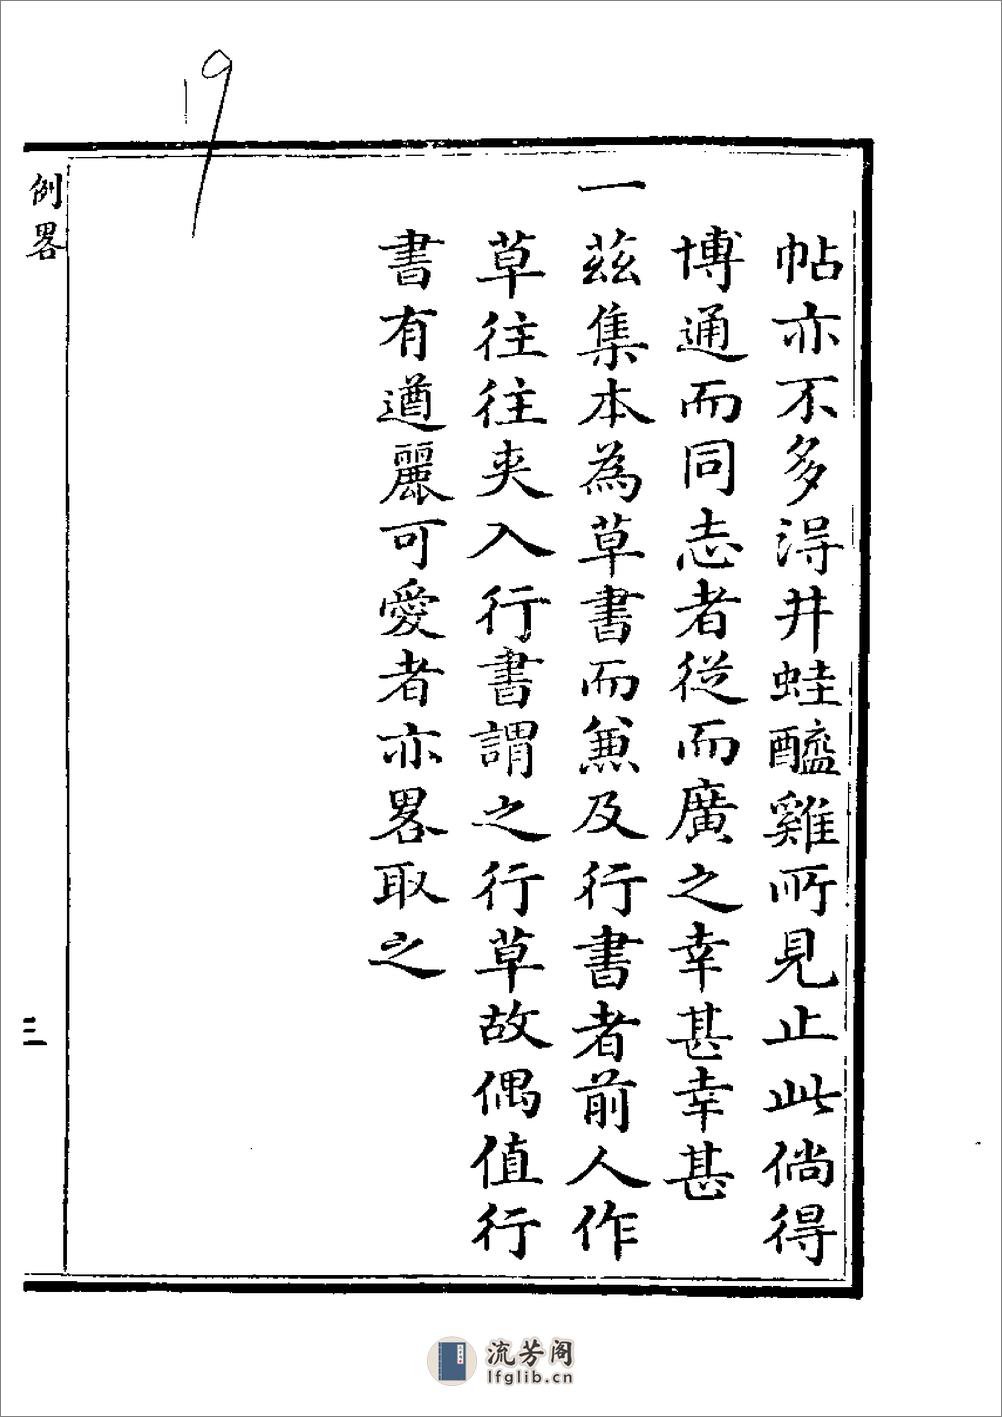 19
帖亦不多淂井蛙醯雞所見止此倘得
博通而同志者從而廣之幸甚幸甚
一茲集本為草書而兼及行書者前人作
草往往夾入行書謂之行草故偶值行
書有遒麗可愛者亦畧取之
例畧
三
流芳阁
lfglib.cn